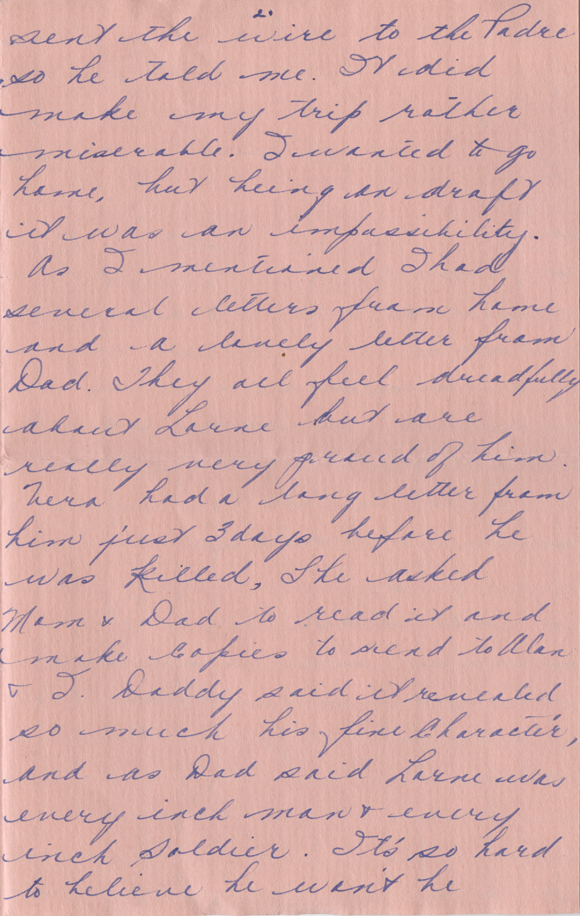 2.
sent the wire to the Padre
so he told me. It did
make my trip rather
miserable. I wanted to go
home, but being on draft
it was an impossibility.
As I mentioned I had
several letters from home
and a lovely letter from
Dad. They all feel dreadfully
about Lorne but are
really very proud of him.
Vera had a long letter from
him just 3 days before he
was killed, She asked
Mom & Dad to read it and
make copies to send to Alan
& I. Daddy said it revealed
so much his fine Character,
and as Dad said Lorne was
every inch man & every
inch Soldier. It's so hard
to believe he won't be